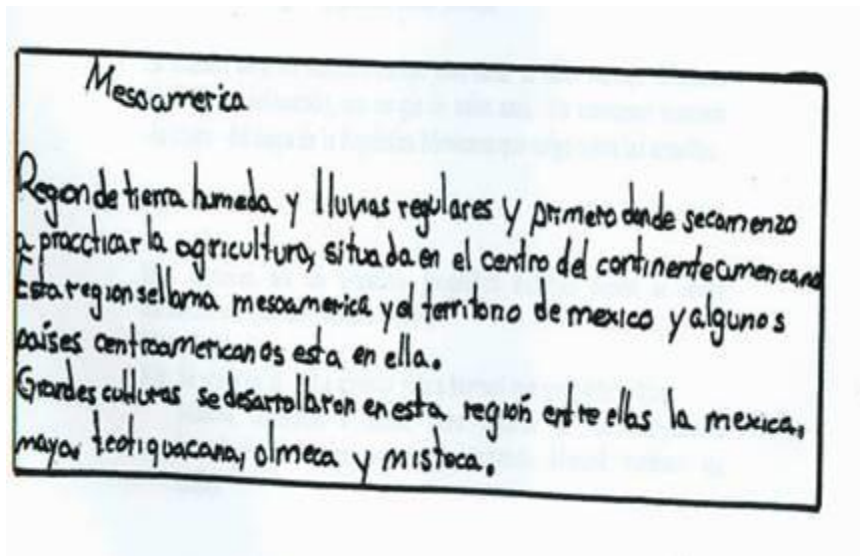 Mesoamerica
Region de tierra humeda y lluvias regulares y primero donde se comenzo
a praccticar la agricultura, situada en el centro del continente americano
Esta region se llama mesoamerica y el territorio de mexico y algunos
países centroamericanos esta en ella.
Grandes culturas se desarrollaron en esta región entre ellas la mexica,
maya, teotiguacana, olmeca y misteca.